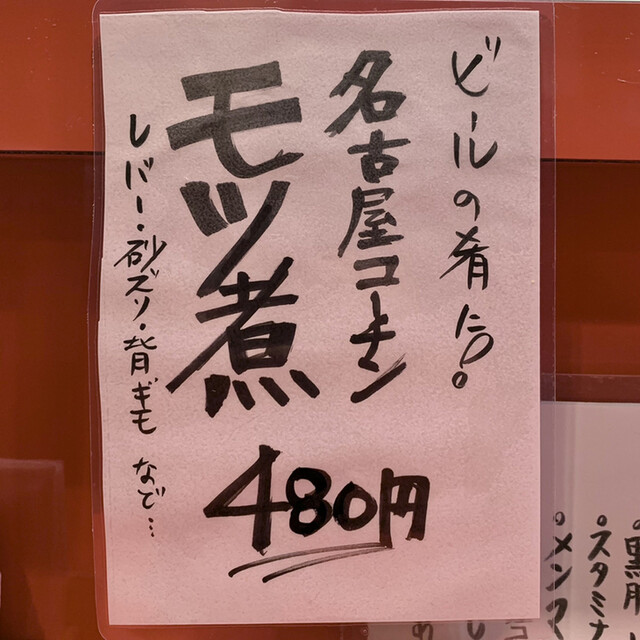 ビールの肴だっ。
名古屋コーチン
モツ煮
レバー・砂ズリ・背ギモ など…
480円
スタミナ
メンマ